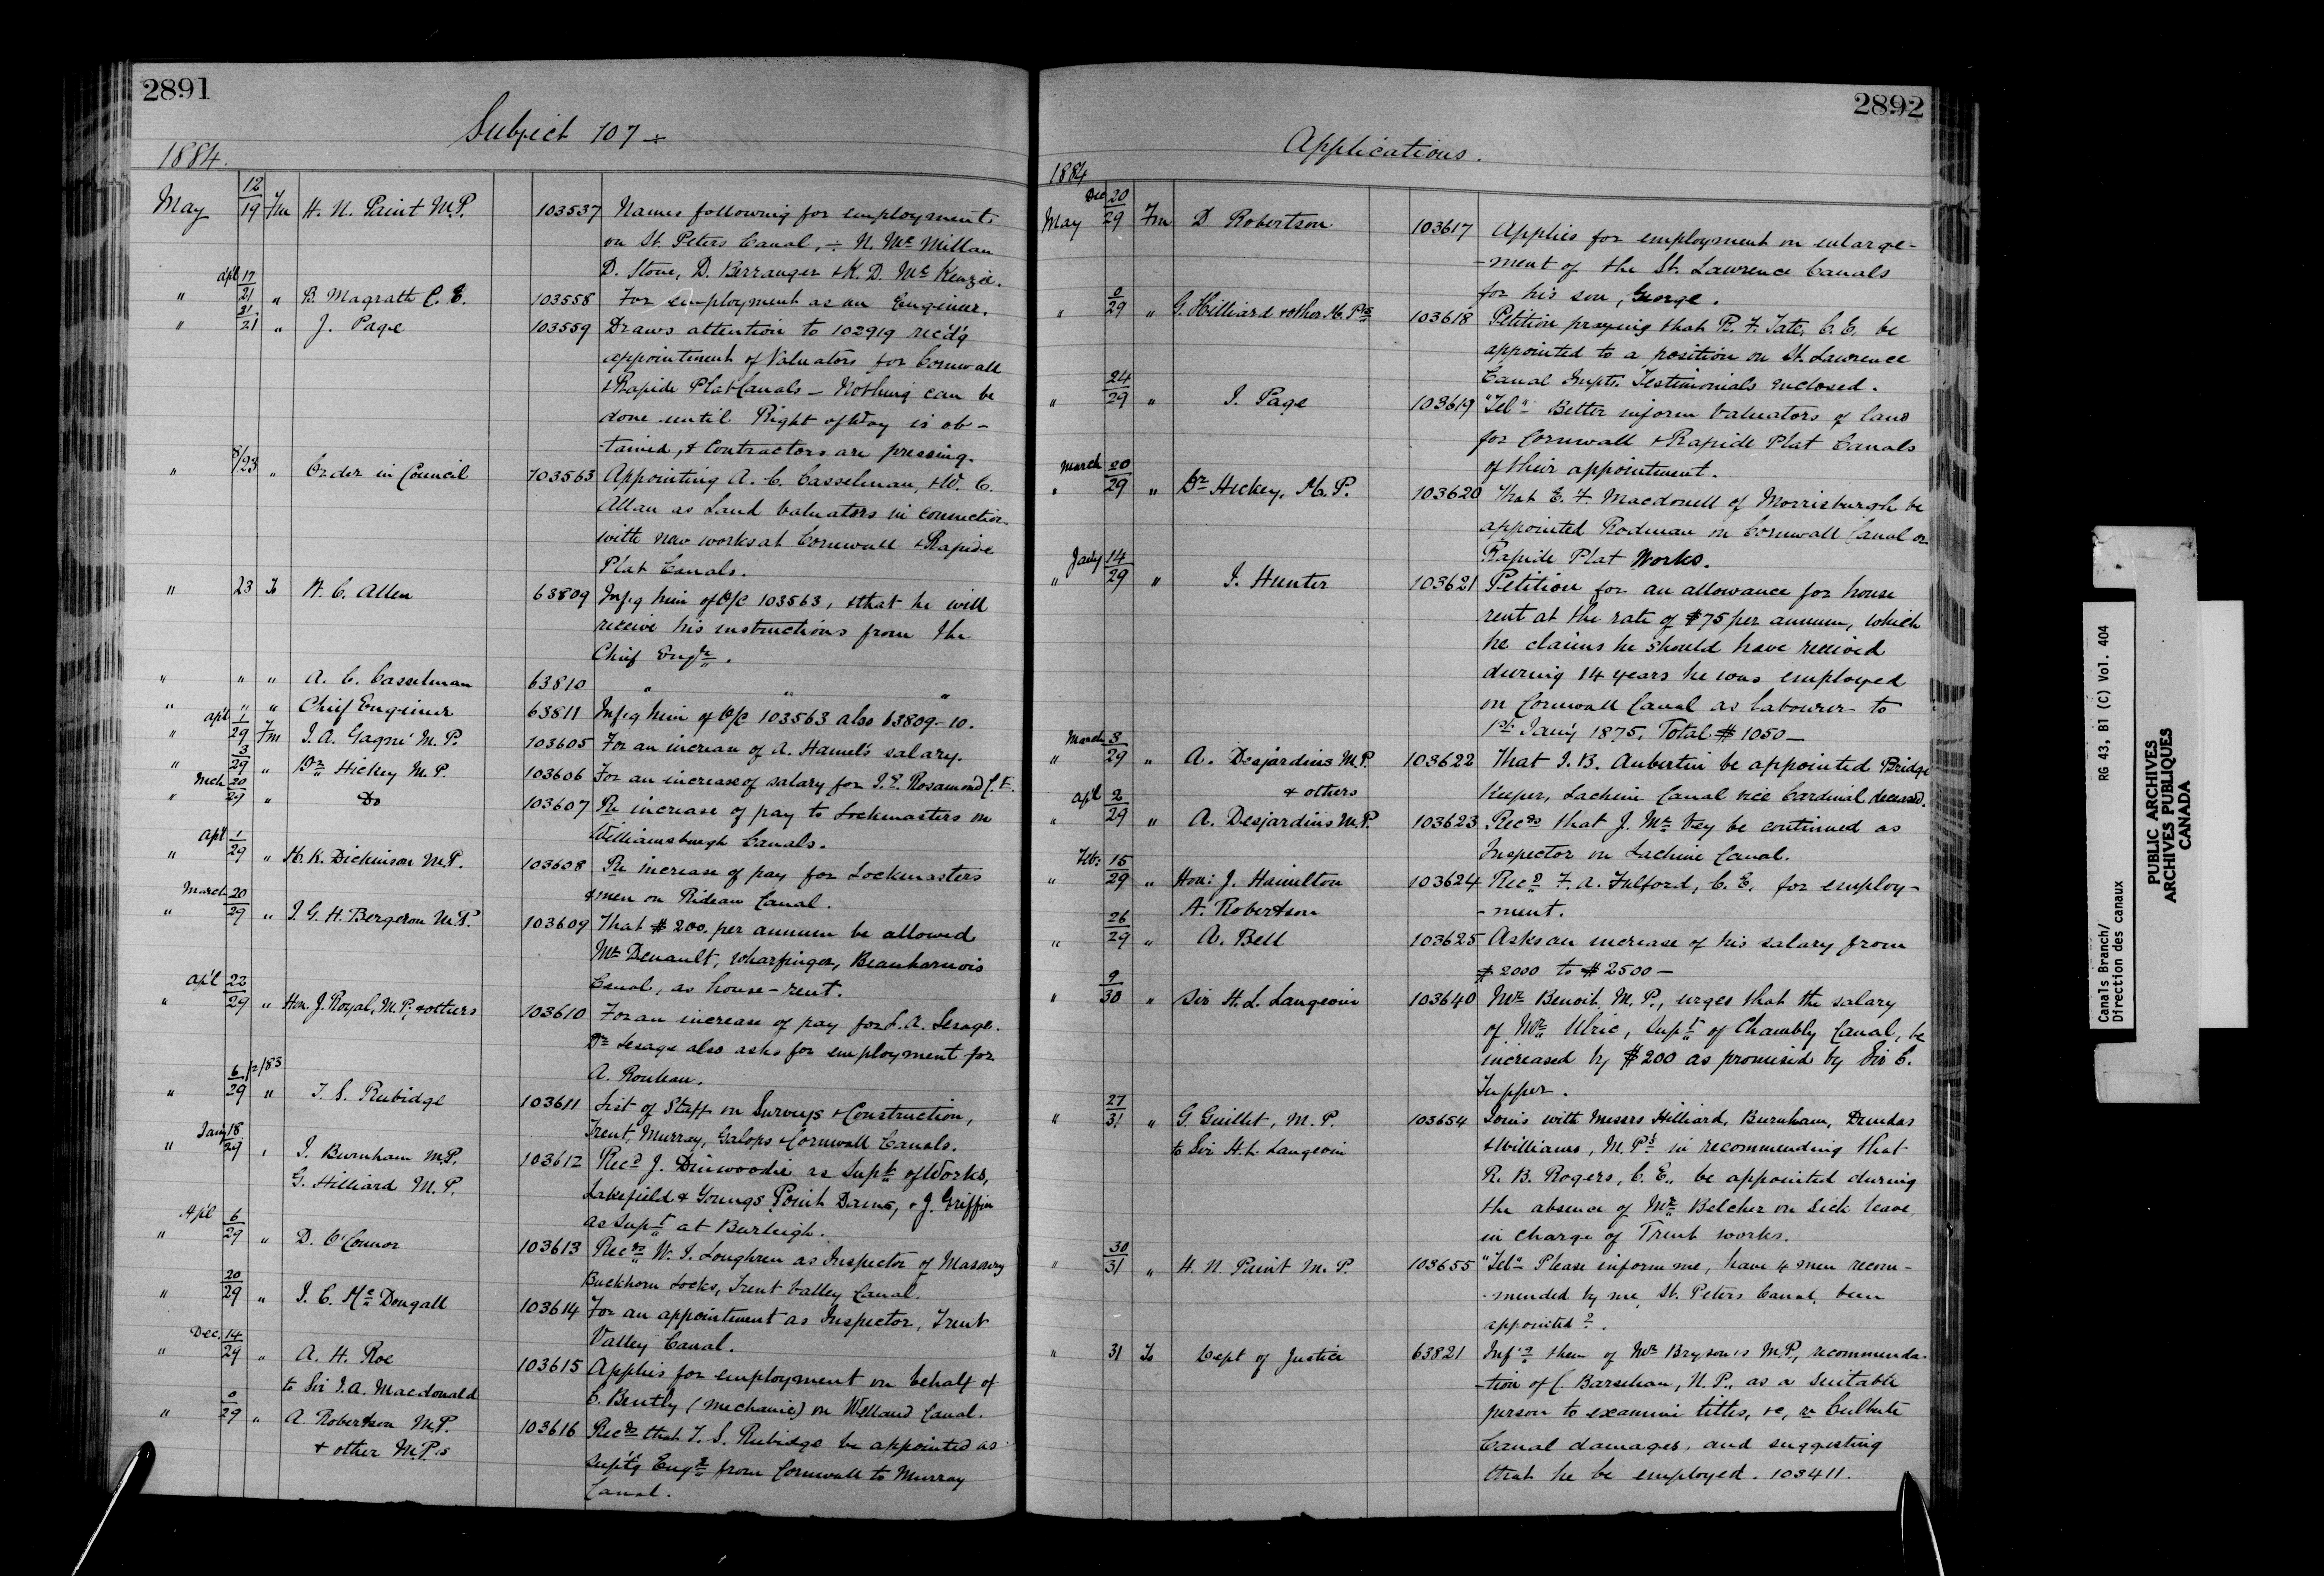 2891
Subject 107 ÷
1884.
May 12/19 Fm H. N. Paint M.P. 103537 Names following for employment
on St. Peters Canal, ÷ N. McMillan
D. Stone, D. Berranger & K. D. McKenzie.
" apl 17/21 " B. Magrath C. E. 103558 For employment as an Engineer.
" 21/21 " J. Page 103559 Draws attention to 102919 rec'd'g
appointment of Valuators for Cornwall
& Rapide Plat Canals – Nothing can be
done until Right of Way is ob-
-tained, & Contractors are pressing.
" /23 " Order in Council 103563 Appointing A. C. Casselman, & W. C.
Allan as Land Valuators in connection
with new works at Cornwall & Rapide
Plat Canals.
" 23 To W. C. Allen 63809 Infg him of O/C 103563, & that he will
receive his instructions from the
Chief Engr.
" " " A. C. Casselman 63810 " " "
" " " Chief Engineer 63811 Infg him of O/C 103563 also 63809-10.
" apl 1/29 Fm J. A. Gagné M. P. 103605 For an increase of A. Hamel's salary.
" 3/29 " Dr Hickey M. P. 103606 For an increase of salary for J. E. Rosamond C. E.
" Mch 20/29 " Do 103607 Re increase of pay to Lockmasters on
Williamsburgh Canals.
" Apl 1/29 " H. K. Dickinson M.P. 103608 Re increase of pay for Lockmasters
& men on Rideau Canal.
" March 20/29 " J. G. H. Bergeron M.P. 103609 That $200. per annum be allowed
Mr Denault, Wharfinger, Beauharnois
Canal, as house-rent.
" Apl 22/29 " Hon. J. Royal, M. P., & others 103610 For an increase of pay for L. A. Lesage.
Dr Lesage also asks for employment for
A. Rouleau.
" 6/29 12/83 " T. S. Rubidge 103611 List of Staff on Surveys & Construction,
Trent, Murray, Galops & Cornwall Canals.
" Jany 18/29 " J. Burnham M.P. 103612 Recd J. Dinwoodie as Supt of Works,
G. Hilliard M. P. Lakefield & Youngs Point Dams, & J. Griffin
as Supt at Burleigh.
" Apl 6/29 " D. O'Connor 103613 Recds W. J. Loughren as Inspector of Masonry
Buckhorn Locks, Trent Valley Canal.
" 20/29 " J. C. McDougall 103614 For an appointment as Inspector, Trent
Valley Canal.
" Dec. 14/29 " A. H. Roe 103615 Applies for employment on behalf of
to Sir J. A. Macdonald C. Bently (Mechanic) on Welland Canal.
" 0/29 " A. Robertson M.P. 103616 Recds that T. S. Rubidge be appointed as
& other M.P.s Supt'g Engr from Cornwall to Murray
Canal.
2892
Applications.
1884
May Dec 20/29 Fm D Robertson 103617 Applies for employment on enlarge-
-ment of the St. Lawrence Canals
for his son, George.
" 0/29 " G. Hilliard & other M. Ps 103618 Petition praying that R. F. Tate, C. E. be
appointed to a position on St. Lawrence
Canal Impts. Testimonials enclosed.
" 24/29 " J. Page 103619 "Tel" Better inform Valuators of land
for Cornwall & Rapide Plat Canals
of their appointment.
" March 20/29 " Dr Hickey, M. P. 103620 That E. F. Macdonell of Morrisburgh be
appointed Rodman on Cornwall Canal or
Rapide Plat Works.
" Jany 14/29 " J. Hunter 103621 Petition for an allowance for house
rent at the rate of $75 per annum, which
he claims he should have received
during 14 years he was employed
on Cornwall Canal as labourer to
1st Jany 1875. Total $1050 –
" March 3/29 " A. Desjardins M.P. 103622 That J. B. Aubertin be appointed Bridge
& others Keeper, Lachine Canal vice Cardinal deceased.
" Apl 2/29 " A. Desjardins M.P. 103623 Recds that J. McVey be continued as
Inspector on Lachine Canal.
" Feb: 15/29 " Hon: J. Hamilton 103624 Recd F. A. Fulford, C. E. for employ-
A. Robertson -ment.
" 26/29 " A. Bell 103625 Asks an increase of his salary from
$2000 to $2500 –
" 9/30 " Sir H. L. Langevin 103640 Mr Benoit M. P., urges that the salary
of Mr Ulric, Supt of Chambly Canal, be
increased by $200 as promised by Sir C.
Tupper.
" 27/31 " G. Guillet, M. P. 103654 Joins with Messrs Hilliard, Burnham, Dundas
to Sir H. L. Langevin & Williams, M. Ps in recommending that
R. B. Rogers, C. E., be appointed during
the absence of Mr Belcher on Sick leave,
in charge of Trent works.
" 30/31 " H. N. Paint M. P. 103655 "Tel" Please inform me, have 4 men recom-
-mended by me, St. Peters Canal, been
appointed?.
" 31 To Dept of Justice 63821 Inf'g them of Mr Bryson's M.P., recommenda-
-tion of C. , N. P., as a suitable
person to examine titles, &c, re Culbute
Canal damages, and suggesting
that he be employed. 103411.
Canals Branch/ RG 43, B1 (C) Vol. 404
Direction des canaux
PUBLIC ARCHIVES
ARCHIVES PUBLIQUES
CANADA